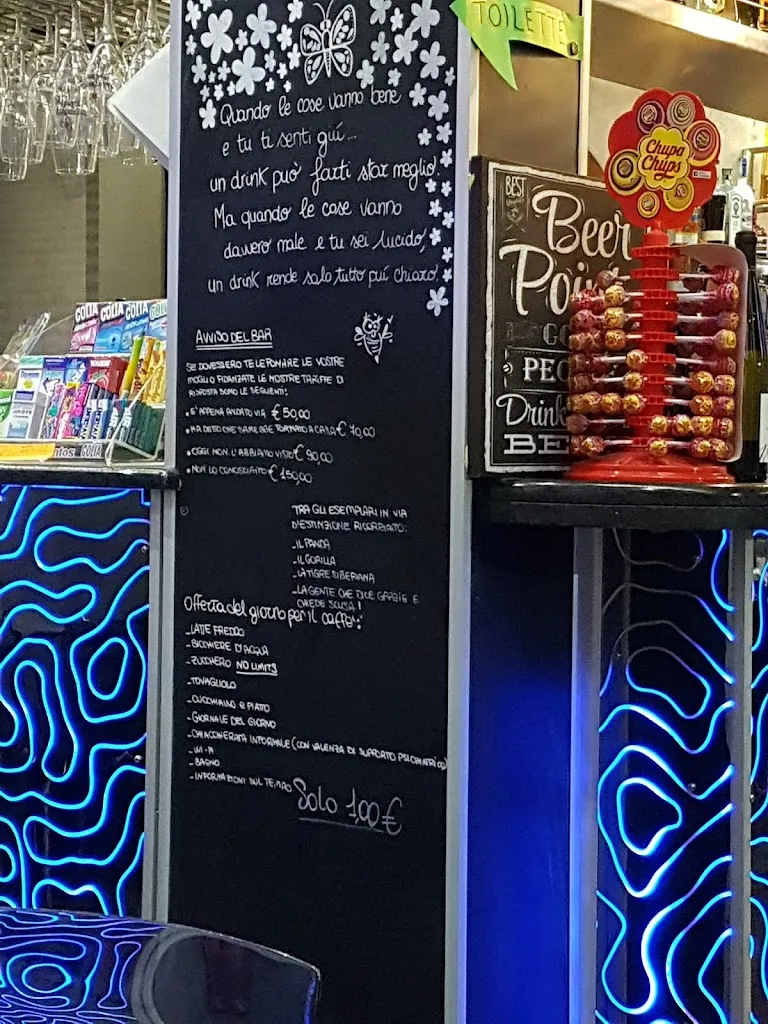 TOILETTE
Quando le cose vanno bene
e tu ti senti giú...
un drink può farti star meglio.
Ma quando le cose vanno
davvero male e tu sei lucido,
un drink rende solo tutto piú chiaro!
AVVISO DEL BAR
SE DOVESSERO TELEFONARE LE VOSTRE
MOGLI O FIDANZATE LE NOSTRE TARIFFE DI
RISPOSTA SONO LE SEGUENTI:
• E' APPENA ANDATO VIA €50,00
• HA DETTO CHE SAREBBE TORNATO A CASA € 70,00
• OGGI NON L'ABBIAMO VISTO € 90,00
• NON LO CONOSCIAMO € 150,00
TRA GLI ESEMPLARI IN VIA
D'ESTINZIONE RICORDIAMO:
_ IL PANDA
_ IL GORILLA
_ LA TIGRE SIBERIANA
_ LA GENTE CHE DICE GRAZIE E
CHIEDE SCUSA!
Offerta del giorno per il caffe':
_ LATTE FREDDO
_ BICCHIERE D'ACQUA
_ ZUCCHERO NO LIMITS
_ TOVAGLIOLO
_ CUCCHIAINO E PIATTO
_ GIORNALE DEL GIORNO
_ CHIACCHIERATA INFORMALE (CON VALENZA DI SUPPORTO PSICHIATRICO)
_ WI-FI
_ BAGNO
_ INFORMAZIONI SUL TEMPO
Solo 1,00 €
BEST
Beer
Point
GO
PEO
Drink
BE
Chupa
Chups
GOLIA GOLIA GOLIA GOL
GOLIA